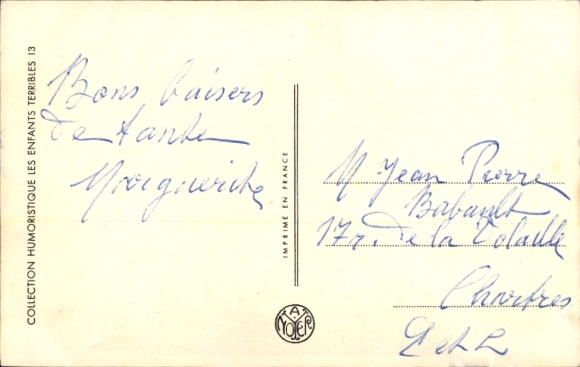 COLLECTION HUMORISTIQUE LES ENFANTS TERRIBLES 13
Bons baisers
de tante
Marguerite
IMPRIMÉ EN FRANCE
M Jean Pierre
Babault
17 r. de la Volaille
Chartres
E et L